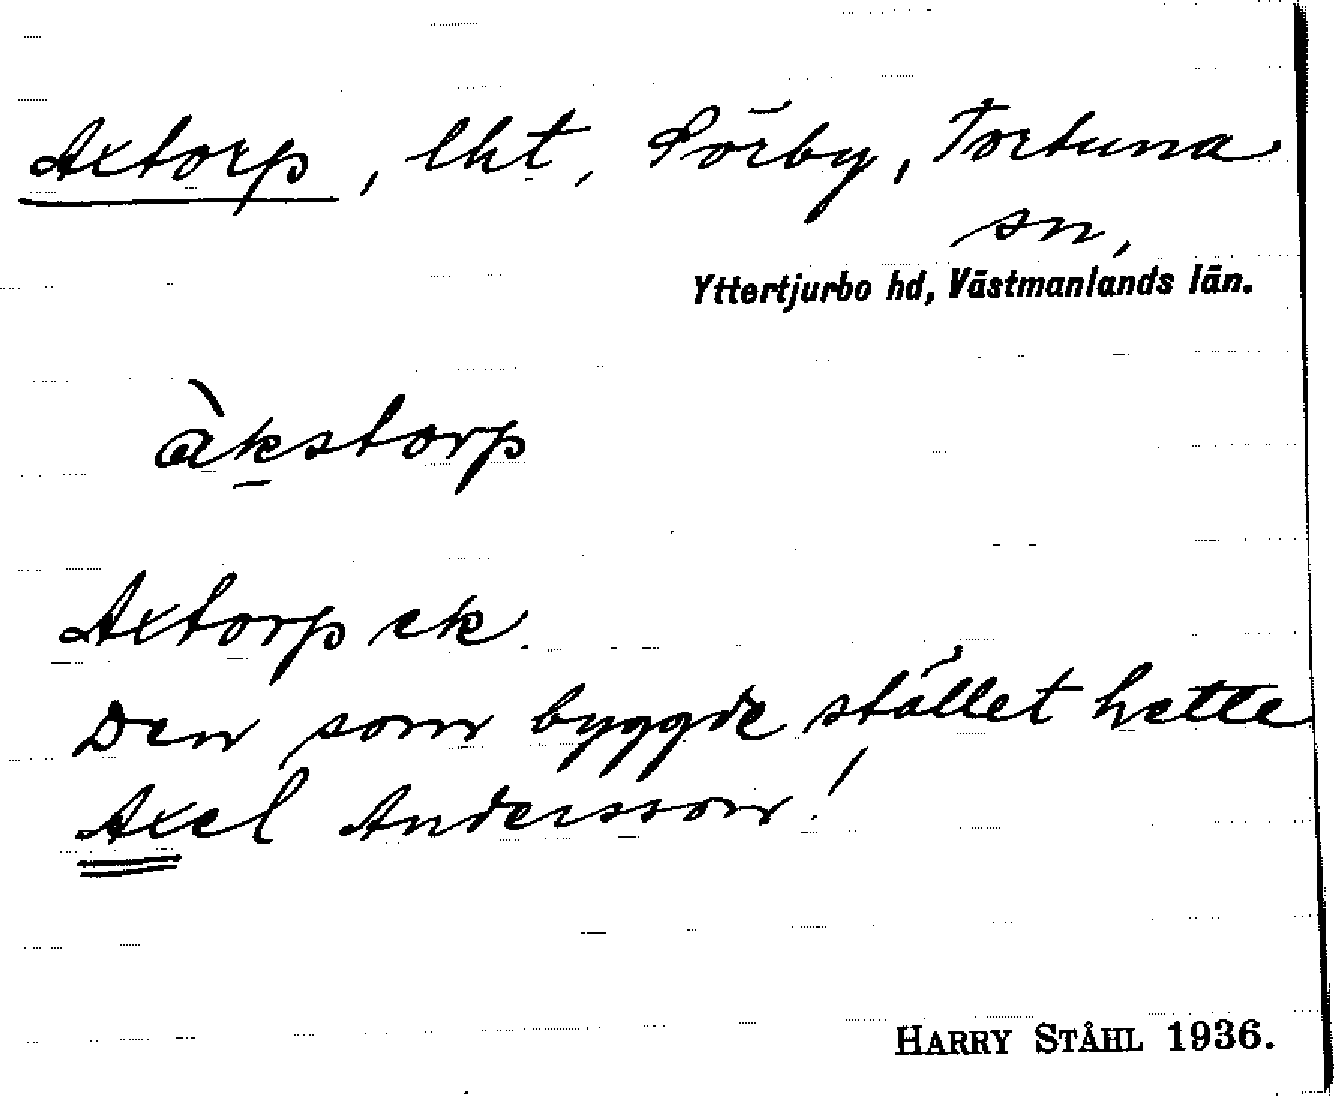 Axtorp, lht, Sörby, Tortuna
sn,
Yttertjurbo hd, Västmanlands län.
àkstorp
Axtorp ek.
Den som byggde stället hette
Axel Andersson!
HARRY STÅHL 1936.